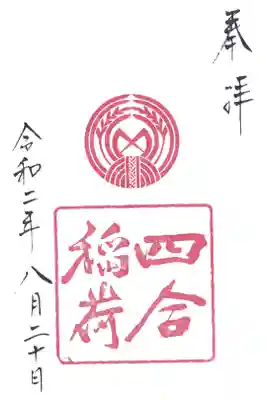 奉拝
四合
稲荷
令和二年 八月二十日